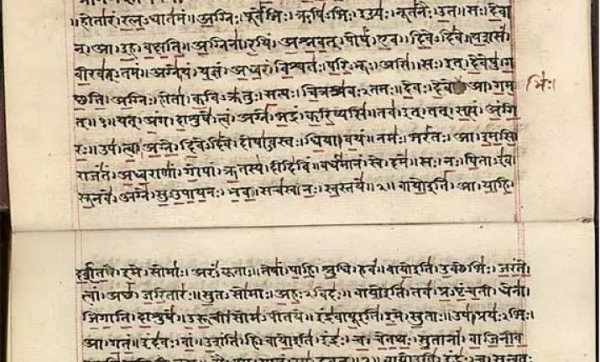 होतारं। रत्नऽधातमं॥ अग्निः। पूर्वेभिः। ऋषिऽभिः। ईड्यः। नूतनैः। उत। सः। देवा
न्। आ। इह। वक्षति॥ अग्निना। रयिं। अश्नवत्। पोषं। एव। दिवेऽदिवे। यशसं
वीरवत्ऽतमं॥ अग्ने। यं। यज्ञं। अध्वरं। विश्वतः। परिऽभूः। असि। सः। इत्। देवेषु। ग
च्छति॥ अग्निः। होता। कविऽक्रतुः। सत्यः। चित्रश्रवःऽतमः। देवः। देवे। आ। गम
भिः।
त्॥१॥ यत्। अंग। दाशुषे। त्वं। अग्ने। भद्रं। करिष्यसि। तव। इत्। तत्। सत्यं। अंगि
रः॥ उप। त्वा। अग्ने। दिवेऽदिवे। दोषाऽवस्तः। धिया। वयं। नमः। भरंतः। आ। इमसि॥
राजंतं। अध्वराणां। गोपां। ऋतस्य। दीदिविं। वर्धमानं। स्वे। दमे॥ सः। नः। पिताऽइव
सूनवे। अग्ने। सुऽउपायनः। भव। सचस्व। नः। स्वस्तये॥२॥ वायो इति। आ। याहि।
दर्शत। इमे। सोमाः। अरंऽकृताः। तेषां। पाहि। श्रुधि। हवं॥ वायो इति। उक्थेभिः। जरंते
त्वां। अच्छ। जरितारः। सुतऽसोमाः। अहःऽविदः॥ वायो इति। तव। प्रऽपृंचती। धेना
जिगाति। दाशुषे। उरूची। सोमऽपीतये॥ इंद्रवायू इति। इमे। सुताः। उप। प्रयःऽभिः।
आ। गतं। इंदवः। वां। उशंति। हि॥ वायो इति। इंद्रः। च। चेतथः। सुतानां। वाजिनीव